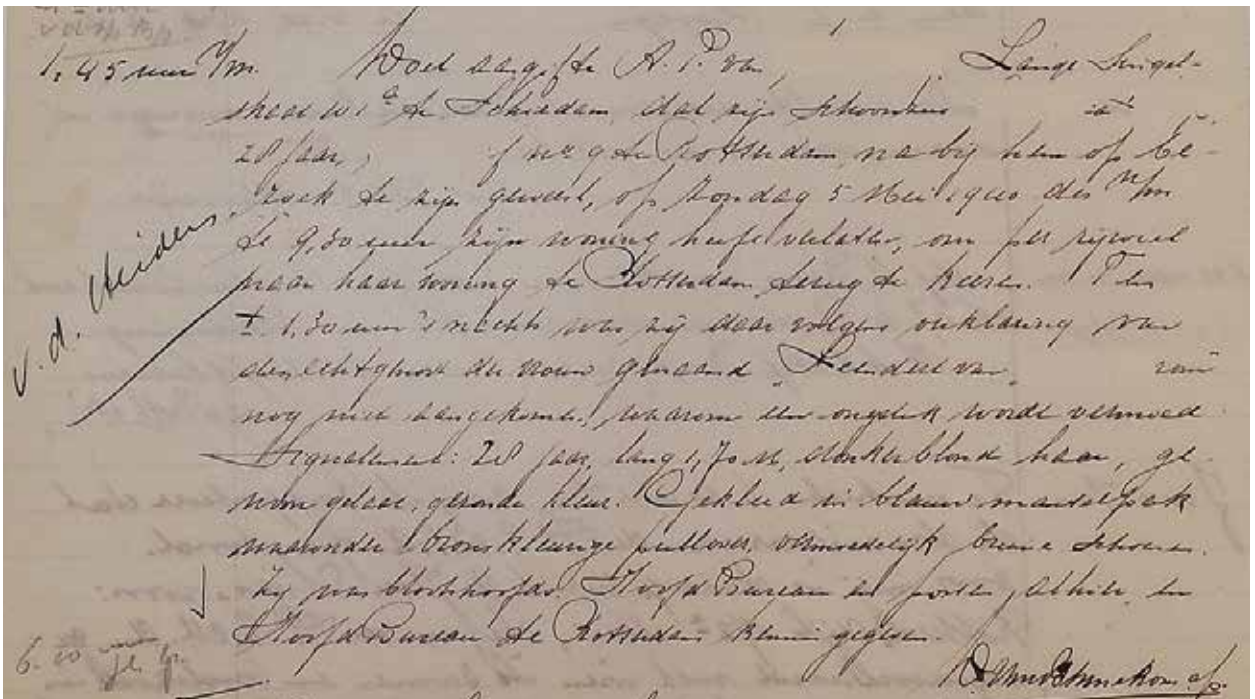 1.45 uur V/m. Doet aangifte A. P. van Lange Singel-
straat te Schiedam, dat zijn schoonzus
28 jaar, te Rotterdam, na bij hem op be-
zoek te zijn geweest, op Zondag 5 Mei des
te 9,30 uur zijn woning heeft verlaten, om per rijwiel
naar haar woning te Rotterdam terug te keeren. Ten
± 1.30 uur 's nachts was zij daar volgens verklaring van
den echtgenoot der vrouw genaamd Leendert van
nog niet aangekomen, waarom een ongeluk wordt vermoed
Signalement: 28 jaar, lang 1,70 M, donkerblond haar, ge-
woon gelaat, gezonde kleur. Gekleed in blauw mantelpak
waaronder bronskleurige pullover, vermoedelijk bruine schoenen.
Zij was blootshoofds. Hoofd Bureau en posten alhier, en
Hoofd Bureau te Rotterdam kennis gegeven.
v. d. Heiden
6.00